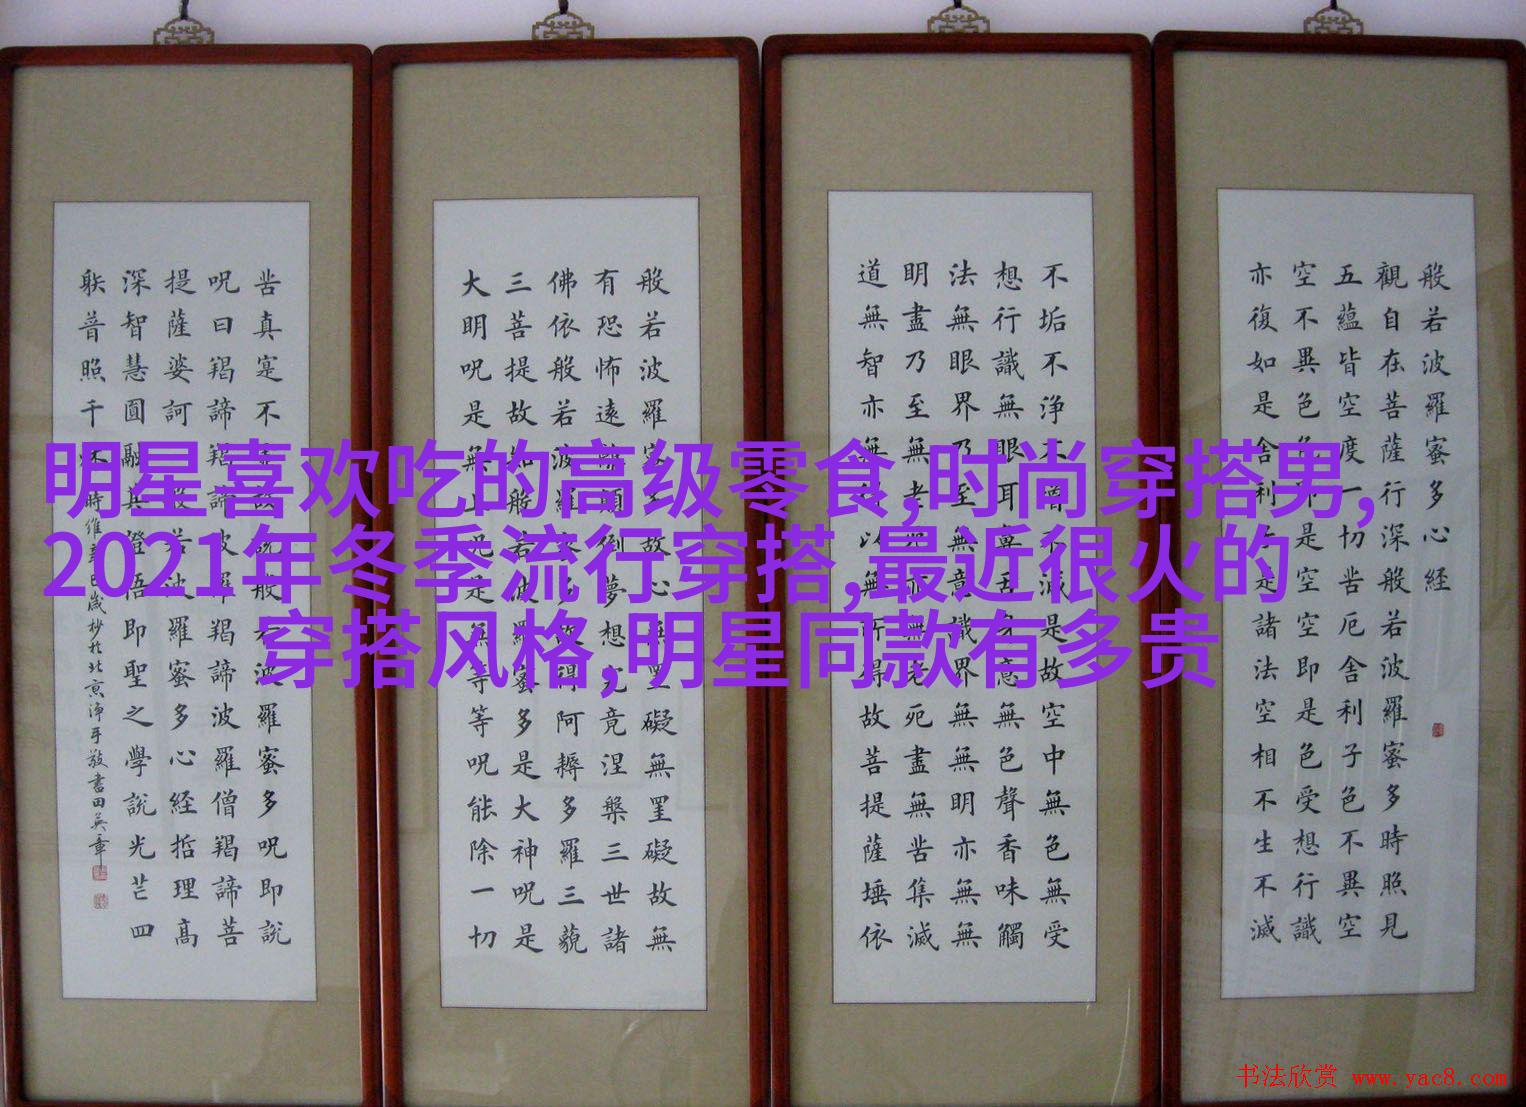 明星喜欢吃的高级零食,时尚穿搭男,
2021年冬季流行穿搭,最近很火的
穿搭风格,明星同款有多贵
般若波羅蜜多心経
觀自在菩薩行深般若波羅蜜多時照見
五蘊皆空度一切苦厄舍利子色不異空
空不異色色即是空空即是色受想行識
亦復如是舍利子是諸法空相不生不滅
不垢不浄不增不減是故空中無色無受
想行識無眼耳鼻舌身意無色聲香味觸
法無眼界乃至無意識界無無明亦無無
明盡乃至無老死亦無老死盡無苦集滅
道無智亦無得以無所得故菩提薩埵依
般若波羅蜜多故心無罣礙無罣礙故無
有恐怖遠離顛倒夢想究竟涅槃三世諸
佛依般若波羅蜜多故得阿耨多羅三藐
三菩提故知般若波羅蜜多是大神呪是
大明呪是無上呪是無等等呪能除一切
苦真寔不故說般若波羅蜜多呪即說
呪曰羯諦羯諦波羅羯諦波羅僧羯諦菩
提薩婆訶般若波羅蜜多心経哲理高
深智慧圓融其證悟即聖之學說光芒四
躲普照千秋時維辛巳歲杪於北京淨手敬書田英章
书法欣赏 www.yac8.com